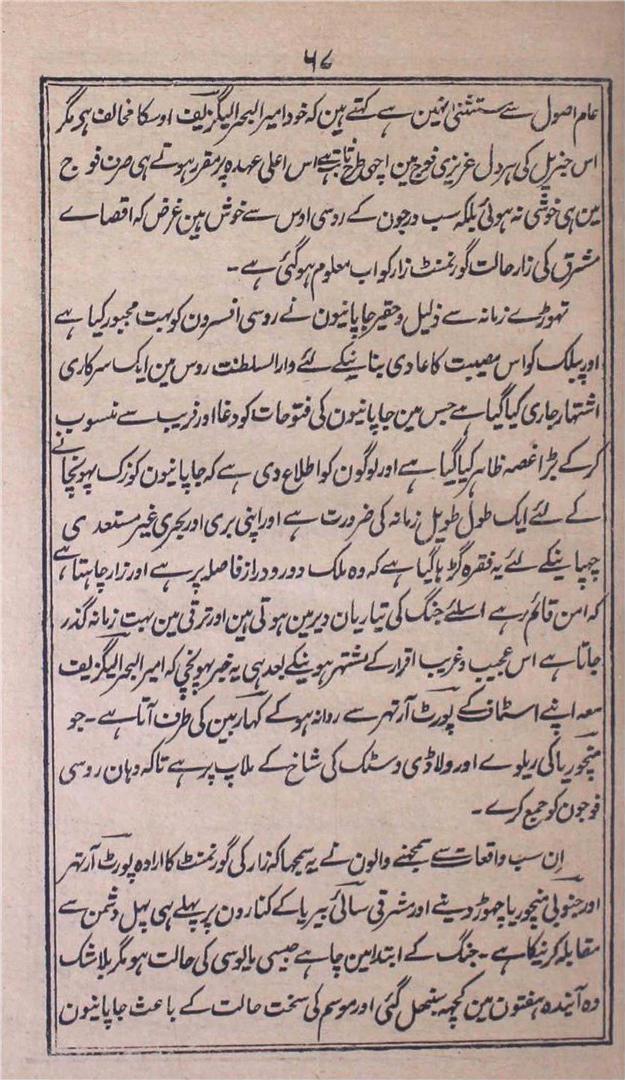 ۶۷
عام اصول سے مستثنیٰ نہین ہے کہتے ہین کہ خود امیر البحر الیگزیف اوسکا مخالف ہی مگر
اس جنریل کی ہر دل عزیزی فوج مین اچھی طرح ثابت ہے اس اعلی عہدہ پر مقرر ہوتے ہی صرف فوج
مین ہی خوشی نہ ہوئی بلکہ سب درجون کے روسی اوس سے خوش ہین غرض کہ اقصاے
مشرق کی زار حالت گورنمنٹ زار کو اب معلوم ہو گئی ہے۔
تھوڑے زمانہ سے ذلیل و حقیر جاپانیون نے روسی افسرون کو بہت مجبور کیا ہے
اور پبلک کو اس مصیبت کا عادی بنانیکے لئے دارالسلطنت روس مین ایک سرکاری
اشتہار جاری کیا گیا ہے جس مین جاپانیون کی فتوحات کو دغا اور فریب سے منسوب
کرکے بڑا غصہ ظاہر کیا گیا ہے اور لوگون کو اطلاع دی ہے کہ جاپانیون کو زک پہونچانے
کے لئے ایک طول طویل زمانہ کی ضرورت ہے اور اپنی بری اور بحری غیر مستعدی
چھپانیکے لئے یہ فقرہ گڑہا گیا ہے کہ وہ ملک دور و دراز فاصلہ پر ہے اور زار چاہتا ہے
کہ امن قائم رہے اسلئے جنگ کی تیاریان دیر مین ہوتی ہین اور ترقی مین بہت زمانہ گذر
جاتا ہے اس عجیب و غریب اقرار کے مشتہر ہونیکے بعد ہی یہ خبر پہونچی کہ امیر البحر الیگزیف
معہ اپنے اسٹاف کے پورٹ آرتھر سے روانہ ہو کے کہاربین کی طرف آتا ہے۔ جو
منچوریا کی ریلوے اور ولاڈی وسٹک کی شاخ کے ملاپ پر ہے تاکہ وہان روسی
فوجون کو جمع کرے۔
اِن سب واقعات سے سمجھنے والون نے یہ سمجھا کہ زار کی گورنمنٹ کا ارادہ پورٹ آرتھر
اور جنوبی منچوریا چھوڑ دینے اور مشرقی سائی بیریا کے کنارون پر پہلے ہی پہل دشمن سے
مقابلہ کرنیکا ہے۔ جنگ کے ابتدا مین چاہے جیسی مایوسی کی حالت ہو مگر بلاشک
وہ آیندہ ہفتون مین کچھ سنبھل گئی اور موسم کی سخت حالت کے باعث جاپانیون